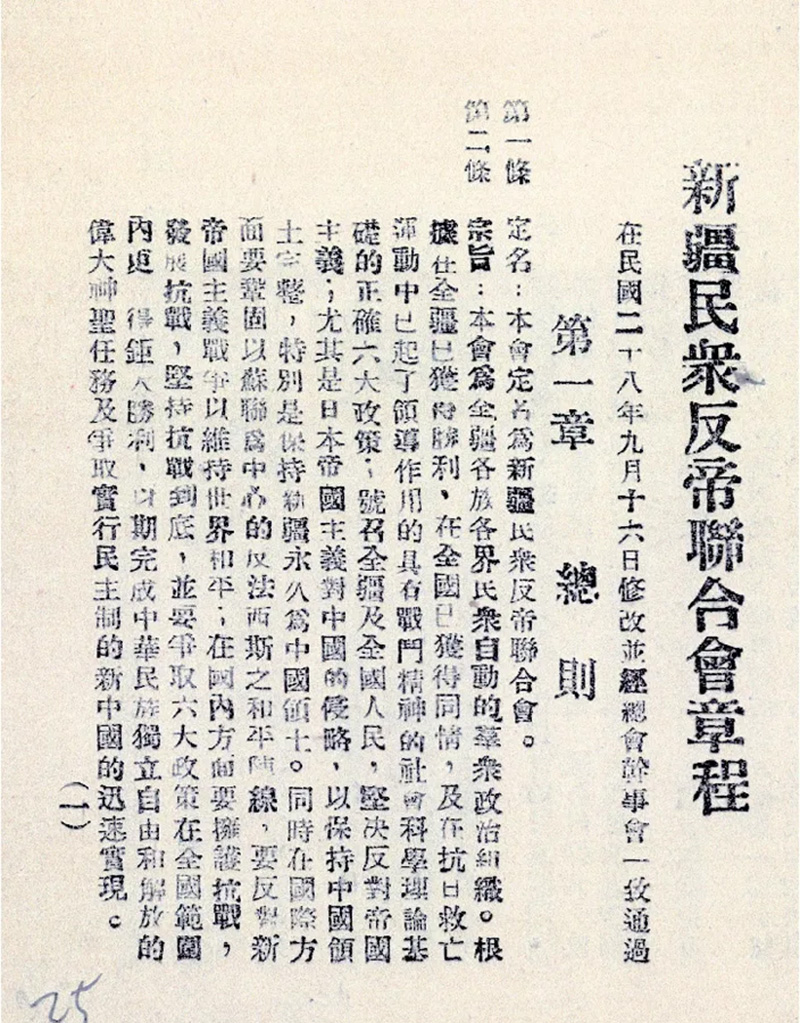 新疆民衆反帝聯合會章程
在民國二十八年九月十六日修改並經總會幹事會一致通過
第一章 總則
第一條 定名：本會定名爲新疆民衆反帝聯合會。
第二條 宗旨：本會爲全疆各族各界民衆自動的羣衆政治組織。根
據在全疆已獲得勝利、在全國已獲得同情，及在抗日救亡
運動中已起了領導作用的具有戰鬥精神的社會科學理論基
礎的正確六大政策；號召全疆及全國人民，堅决反對帝國
主義；尤其是日本帝國主義對中國的侵略，以保持中國領
土完整，特別是保持新疆永久爲中國領土。同時在國際方
面要鞏固以蘇聯爲中心的反法西斯之和平陣線，要反對新
帝國主義戰爭以維持世界和平；在國內方面要擁護抗戰，
發展抗戰，堅持抗戰到底，並要爭取六大政策在全國範圍
內更 得鉅大勝利，以期完成中華民族獨立自由和解放的
偉大神聖任務及爭取實行民主制的新中國的迅速實現。
（一）
25